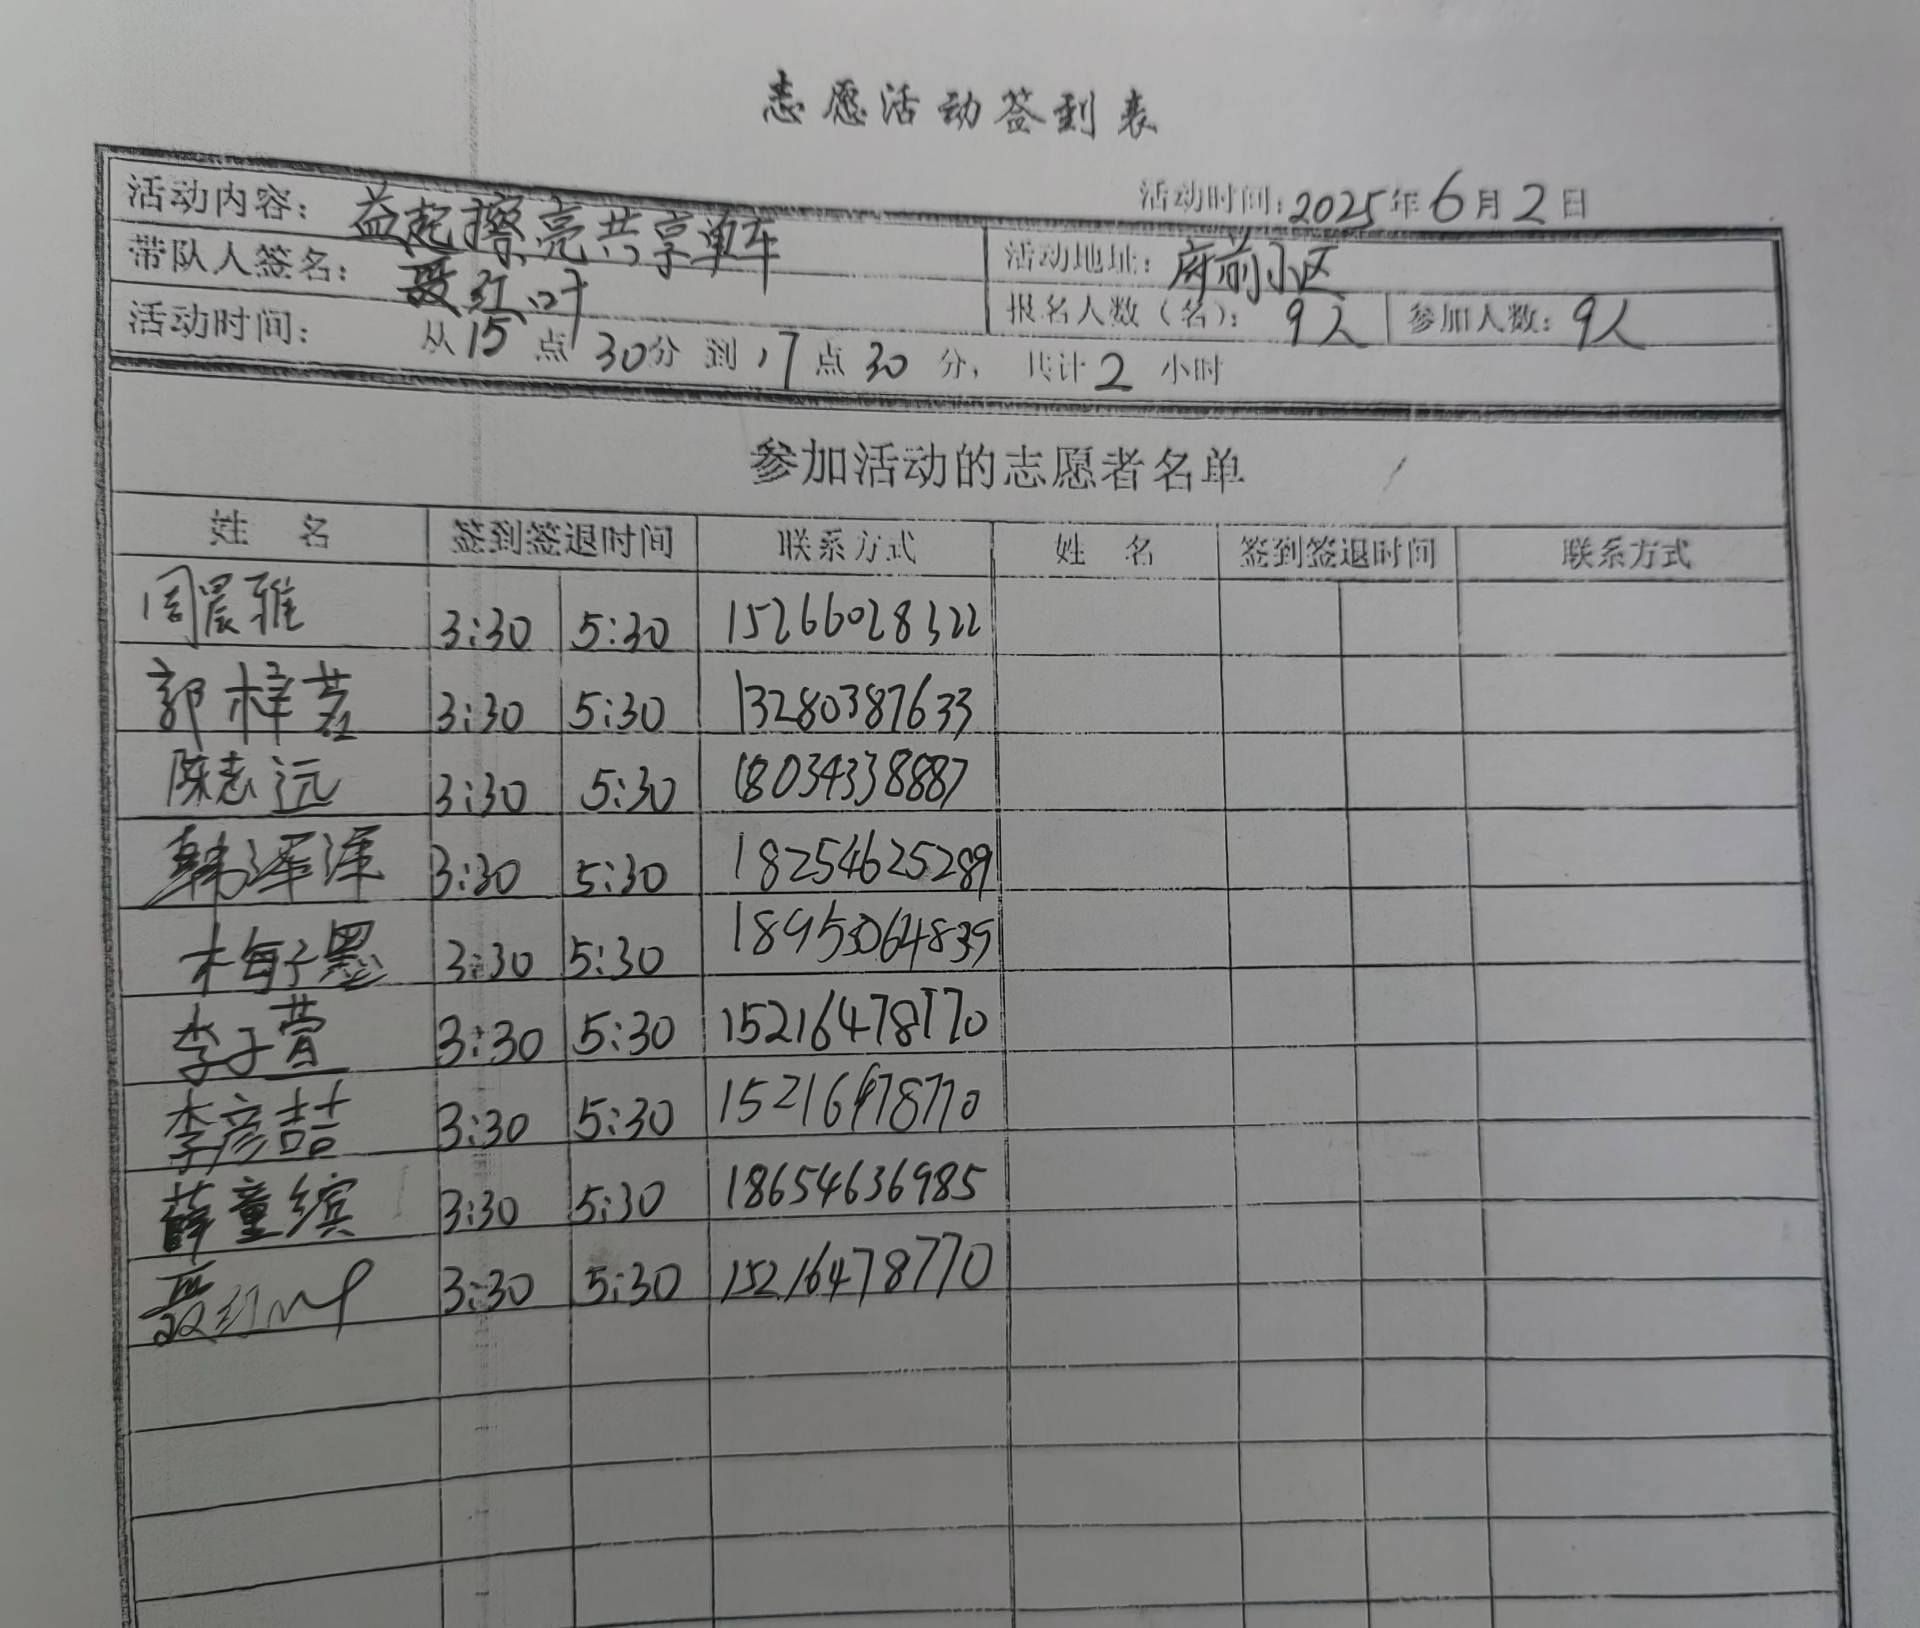 志愿活动签到表
活动时间:2025年6月2日
活动内容:益起擦亮共享单车 活动地址:府前小区
带队人签名:聂红叶 报名人数(名):9人 参加人数:9人
活动时间: 从15点30分到17点30分,共计2小时
参加活动的志愿者名单
姓 名 签到签退时间 联系方式 姓 名 签到签退时间 联系方式
周晨雅 3:30 5:30 15266028322
郭梓茗 3:30 5:30 13280387633
陈志远 3:30 5:30 18034338887
韩泽洋 3:30 5:30 18254625289
梅子墨 3:30 5:30 18953064839
李子萱 3:30 5:30 15216478770
李彦喆 3:30 5:30 15216478770
薛童缤 3:30 5:30 18654636985
聂红叶 3:30 5:30 15216478770